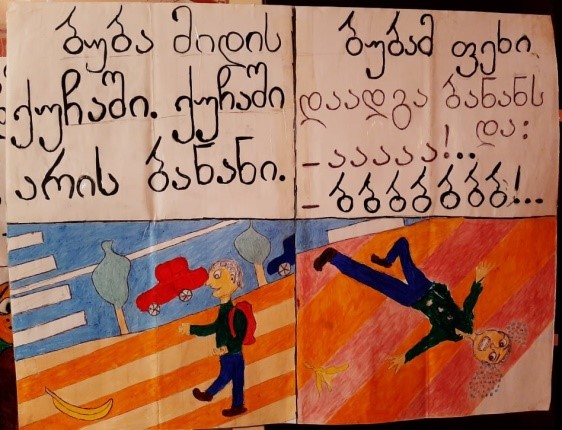 ბუბა მიდის
ქუჩაში. ქუჩაში
არის ბანანი.
ბუბამ ფეხი
დაადგა ბანანს
და:
– ააააა!..
– ბბბბბბბ!..